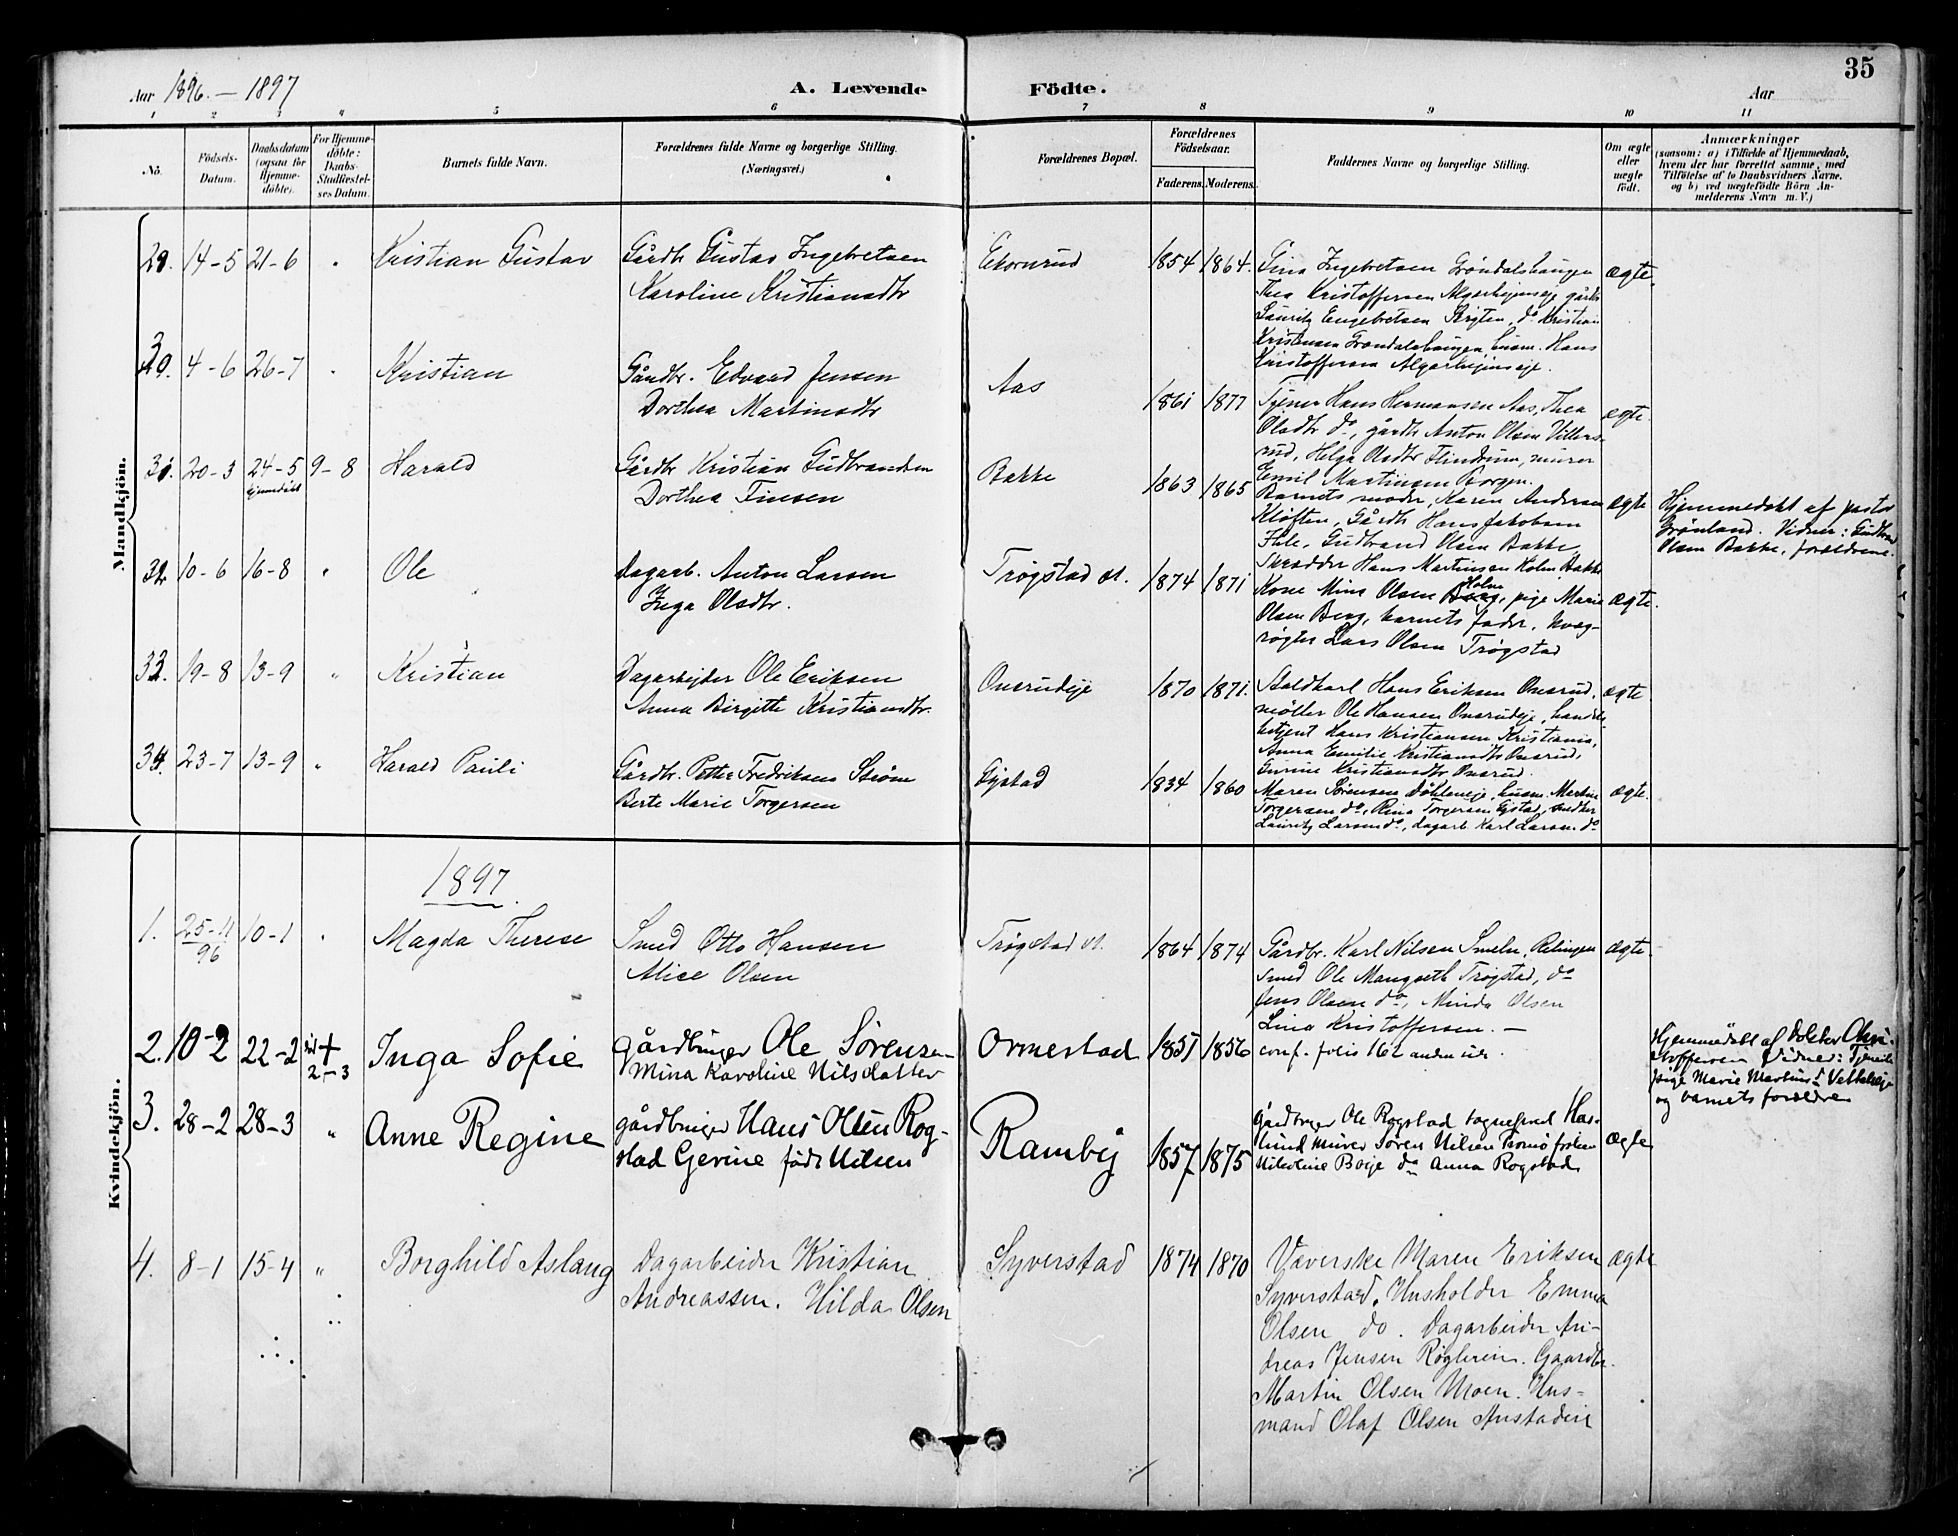 35
Aar 1896. – 1897
A. Levende
Födte.
Aar
1 2 3 4 5 6 7 8 9 10 11
No.
Födsels-Datum.
Daabsdatum (ogsaa for Hjemme-döbte).
For Hjemme-döbte: Daabs-Stadfæstel-ses Datum.
Barnets fulde Navn.
Forældrenes fulde Navne og borgerlige Stilling. (Næringsvei.)
Forældrenes Bopæl.
Forældrenes Födselsaar.
Faderens. Moderens.
Faddernes Navne og borgerlige Stilling.
Om ægte eller uægte födt.
Anmærkninger
(saasom: a) i Tilfælde af Hjemmedaab, hvem der har forrettet samme, med Tilföielse af to Daabsvidners Navne. og b) ved uægtefödte Börn An-melderens Navn m. V.)
Mandkjön.
29. 14-5 21-6 " Kristian Gustav
Gårdbr Gustav Ingebretsen
Karoline Kristiansdtr
Ekornrud 1854 1864.
Gina Ingebretsen Grøndalshaugen
Thea Kristoffersen Algarhejmseje gårdb
Lauritz Engebretsen Skryten, do Kristian
Kristensen Grøndalshaugen, husm. Hans
Kristoffersen Algarhejmseje.
ægte.
30. 4-6 26-7 " Kristian
Gårdbr. Edvard Jensen
Dorthea Martinsdtr
Aas 1861 1877
Tjener Hans Hermansen Aas, Thea
Olsdtr do, gårdb Anton Olsen Villers-
rud, Helga Olsdtr Flindrum, murer
Emil Martinsen Borgen.
ægte
31. 20-3 24-5 hjemmedøbt 9-8 Harald
Gårdbr Kristian Gudbrandsen
Dorthea Finsen
Bakke 1863 1865
Barnets moder, Karen Andersen
Kløften, Gårdb Hans Jakobsen
Hele, Gudbrand Olsen Bakke,
Skrædder Hans Martinsen Holm Bakke
ægte
Hjemmedøbt af pastor
Grønland. Vidner: Gudbrand
Olsen Bakke, forældrene.
32. 10-6 16-8 " Ole
Dagarb. Anton Larsen
Inga Olsdtr.
Trøgstad v. 1874 1871
Kone Mina Olsen Holm, pige Marie
Olsen Berg, barnets fader, kvæg-
røgter Lars Olsen Trøgstad
ægte.
33. 19-8 13-9 " Kristian
Dagarbejder Ole Eriksen
Anna Birgitte Kristiansdtr.
Onsrudeje 1870 1871.
Staldkarl Hans Eriksen Onsrud,
møller Ole Hansen Onsrudeje, handels-
betjent Hans Kristiansen Kristiania,
Anna Emilie Kristiansdtr Onsrud,
Gurine Kristiansdtr Onsrud.
ægte
34. 23-7 13-9 " Harald Pauli
Gårdbr. Petter Fredriksen Strøm
Berte Marie Torgersen
Gystad 1834 1860
Maren Sørensen Døhleneje, husm. Martin
Torgersen do, Rina Torgersen Gystad, snedker
Lauritz Larsen do, dagarb. Karl Larsen do
ægte.
Kvindekjön.
1897.
1. 25-11 96 10-1 " Magda Therese
Smed Otto Hansen
Alice Olsen
Trøgstad v. 1864 1874
Gårdbr. Karl Nilsen Smeln, Relingen
Smed Ole Mangseth Trøgstad, do
Jens Olsen do, Minda Olsen
Lina Kristoffersen. –
ægte
2. 10-2 22-2 + 2-3 Inga Sofie
gårdbruger Ole Sørensen
Mina Karoline Nilsdatter
Ormestad 1851 1856
conf. folio 162
Hjemmedøbt af Doktor Chri-
stoffersen Vidner: Tjeneste
pige Marie Martins d Vetaleje
og barnets forældre
3. 28-2 28-3 " Anne Regine
gårdbruger Hans Olsen Rog-
stad Gerine født Nilsen
Ramby 1857 1875
gårdbruger Ole Rogstad sognefred Has-
lund murer Søren Nilsen Tromø frøken
Nikoline Boije do Anna Rogstad
ægte
4. 8-1 15-4 " Borghild Aslaug
Dagarbeider Kristian
Andreassen. Hilda Olsen
Syverstad 1874 1870
Væverske Maren Eriksen
Syverstad. Husholder Emma
Olsen do. Dagarbeider An-
dreas Jensen Røgleren. Gaardbr.
Martin Olsen Moen. Hus-
mand Olaf Olsen Anstadeie
ægte